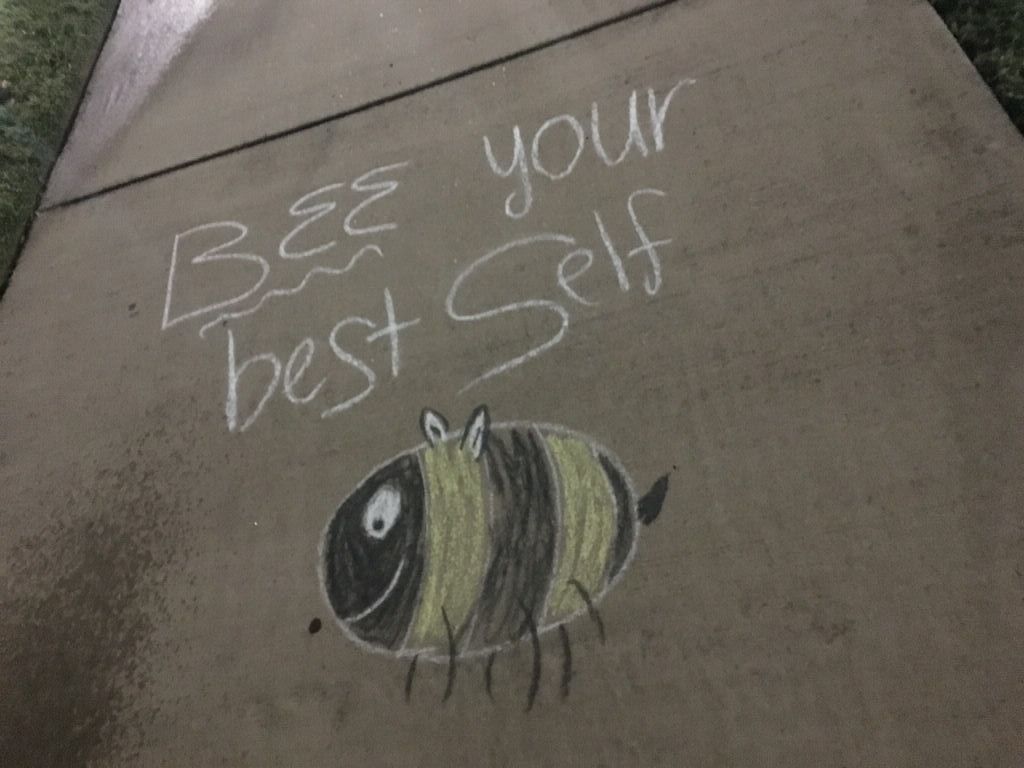 BEE your
best Self